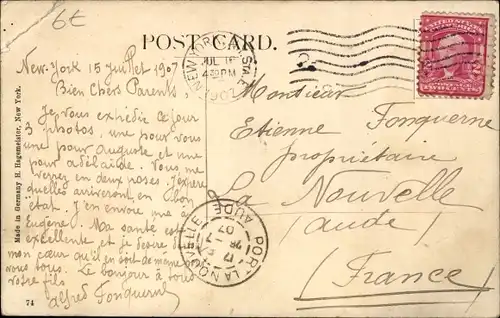 6€
POST CARD.
NEW YORK, N.Y. STA.
JUL 16
4 30 PM
1907
UNITED STATES
New-York 15 juillet 1907
Bien Chers Parents
Je vous expédie ce jour
3 photos, une pour vous
une pour Auguste et une
pour Adelaïde. Vous me
verrez en deux poses. J'espère
quelles ariveront en bon
état. J'en envoie une à
Eugène. Ma santé est
excellente et je désire de
mon cœur qu'il en soit de même de
vous tous. Le bonjour à tous
votre fils
Alfred Fonquerne
Monsieur
Etienne Fonquerne
propriétaire
La Nouvelle
(Aude)
(France)
PORT LA NOUVELLE
AUDE
Made in Germany H. Hagemeister, New York.
74